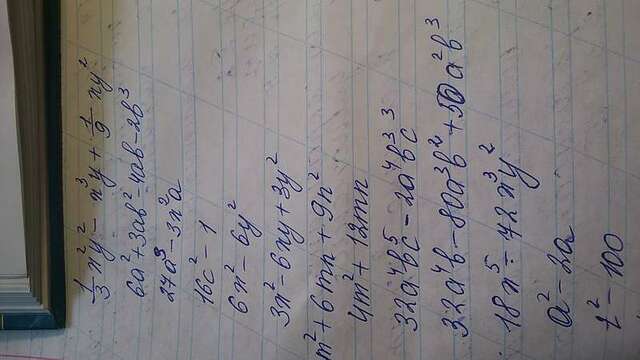 1/3 x²y² - x³y + 1/9 xy²
6a² + 3ab² - 4ab - 2b³
27a³ - 3x²a
16c² - 1
6x² - 6y²
3x² - 6xy + 3y²
m² + 6mn + 9n²
4m² + 12mn
32a⁴bc⁵ - 2a⁴b³c³
32a⁴b - 80a³b² + 50a²b³
18x⁵ - 72x³y²
a² - 2a
t² - 100